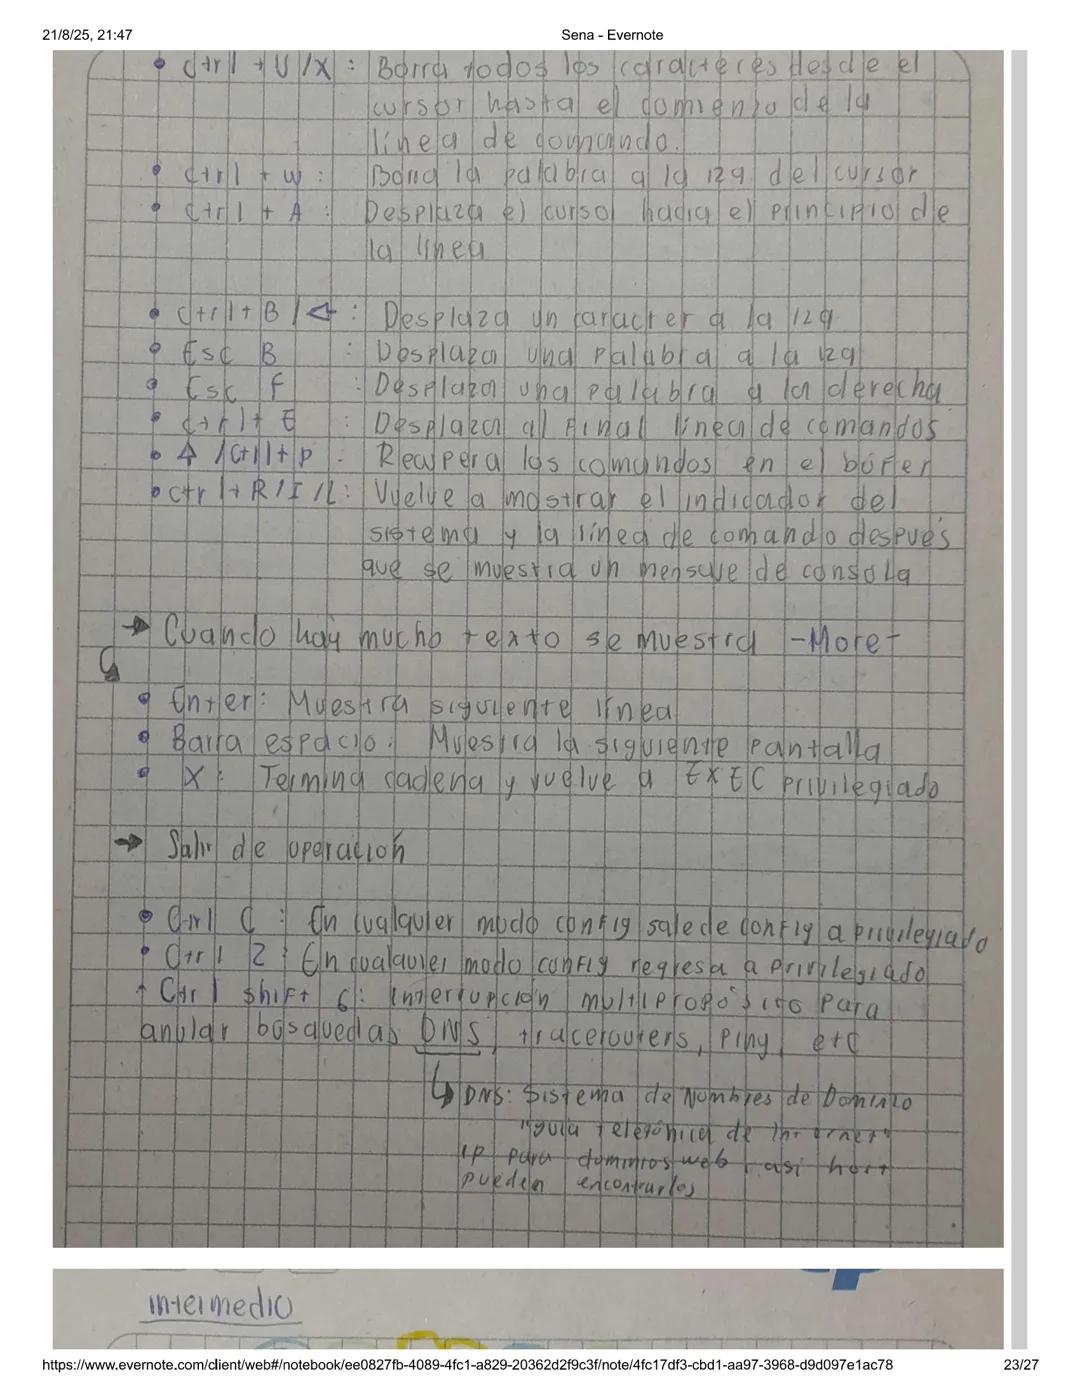 21/8/25, 21:47 Sena - Evernote
• Ctrl + U / X : Borra todos los caracteres desde el
cursor hasta el comienzo de la
línea de comando.
• Ctrl + w : Borra la palabra a la izq. del cursor
• Ctrl + A : Desplaza el curso hacia el principio de
la línea
• Ctrl + B / ← : Desplaza un caracter a la izq
• Esc B : Desplaza una palabra a la izq
• Esc F : Desplaza una palabra a la derecha
• Ctrl + E : Desplaza al Final linea de comandos
• ↑ / Ctrl + P : Recupera los comandos en el búfer
• ctrl + R / I / L : Vuelve a mostrar el indicador del
sistema y la línea de comando después
que se muestra un mensaje de consola
→ Cuando hay mucho texto se muestra -More-
• Enter : Muestra siguiente línea
• Barra espacio : Muestra la siguiente pantalla
• X : Termina cadena y vuelve a EXEC privilegiado
→ Salir de operación
• Ctrl C : En cualquier modo config sale de config a privilegiado
• Ctrl Z : En cualquier modo config regresa a privilegiado
• Ctrl shift 6 : Interrupción multipropósito para
anular búsquedas DNS, tracerouters, Ping, etc
↳ DNS: Sistema de Nombres de Dominio
"guia telefónica de Internet"
IP para dominios web, asi host
pueden encontrarlos
intermedio
https://www.evernote.com/client/web#/notebook/ee0827fb-4089-4fc1-a829-20362d2f9c3f/note/4fc17df3-cbd1-aa97-3968-d9d097e1ac78 23/27